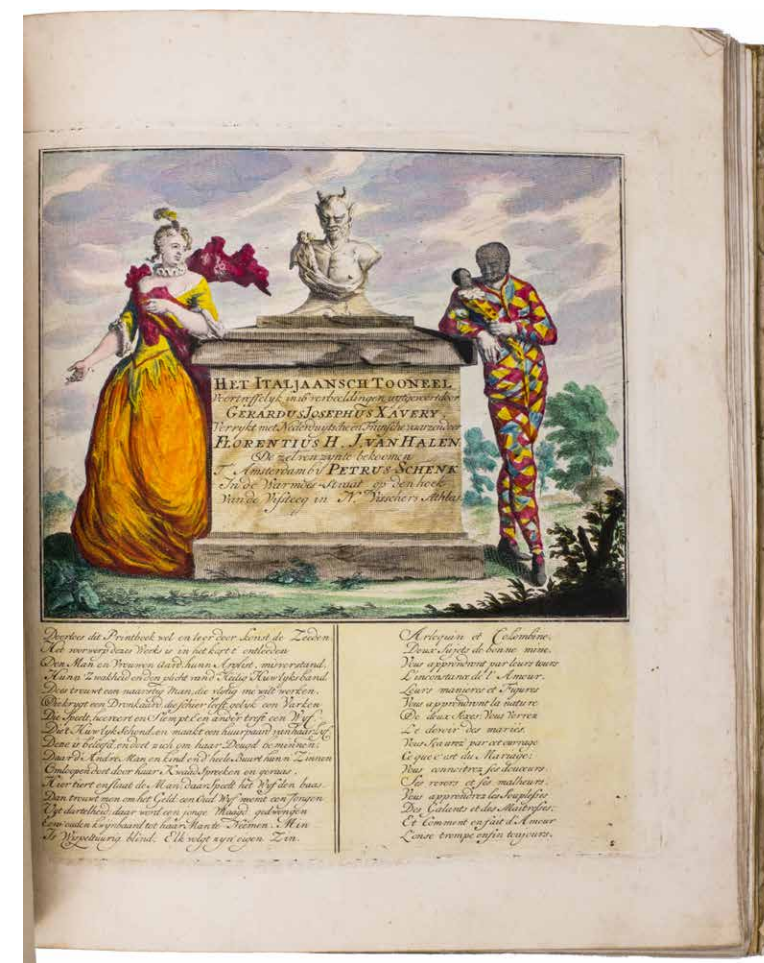 HET ITALJAANSCH TOONEEL
Voortreffelyk in 16 verbeeldingen uytgevoert door
GERARDUS JOSEPHUS XAVERY,
Verrykt met Nederduytsche en Fransche vaarzen door
FLORENTIUS H. J. VAN HALEN
De zelven zyn te bekoomen
T' Amsterdam by PETRUS SCHENK
In de Warmoes-Straat op den hoek
Van de Vissteeg in N. Visschers Athlas
Doorlees dit Printboek wel en leer door Konst de Zeeden
Het voorwerp dezes Werks is in het kort t' ontleeden
Den Man en Vrouwen Aard hunn Arglist, misverstand,
Hunn Zwakheid en den plicht van d' Heilig Huwlyks band
Dees trouwt een naarstig Man, die vlytig me wilt werken,
Die krygt een Dronkaard, die schier leeft gelyk een Varken
Die Speelt, hoereert en Slempt En ander treft een Wyf
Dat Huwlyk Schend, en maakt een huurpaard van haar lyf
Deze is beleefd, en doet zich om haar Deugd beminnen;
Daar d' Andre Man en kind en d' heele Buurt hunn Zinnen
Omloopen doet door haar Kwaad Spreeken en geraas;
Hier tiert en slaat de Man, daar Speelt het Wyf den baas
Dan trouwt men om het Geld een Oud Wyf neemt een Jongen
Uyt dartelheid, daar word een jonge Maagd gedwongen
Een ouden kwynbaard tot haar Man te Neemen. Min
Is Wispeltuurig blind. Elk volgt zyn eigen Zin.
Arlequin et Colombine,
Deux Sujets de bonne mine,
Vous apprendront par leurs tours
L'inconstance de l'Amour.
Leurs manieres et Figures
Vous apprendront la nature
De deux Sexes. Vous Verrez
Le devoir des mariés.
Vous Scaurez par cet ouvrage
Ce que c'est du Mariage;
Vous connoitrez ses douceurs,
Ses revers et ses malheurs.
Vous apprendrez les Souplesses
Des Galants et des Maitresses,
Et Comment en fait d'Amour
L'on se trompe enfin toujours.